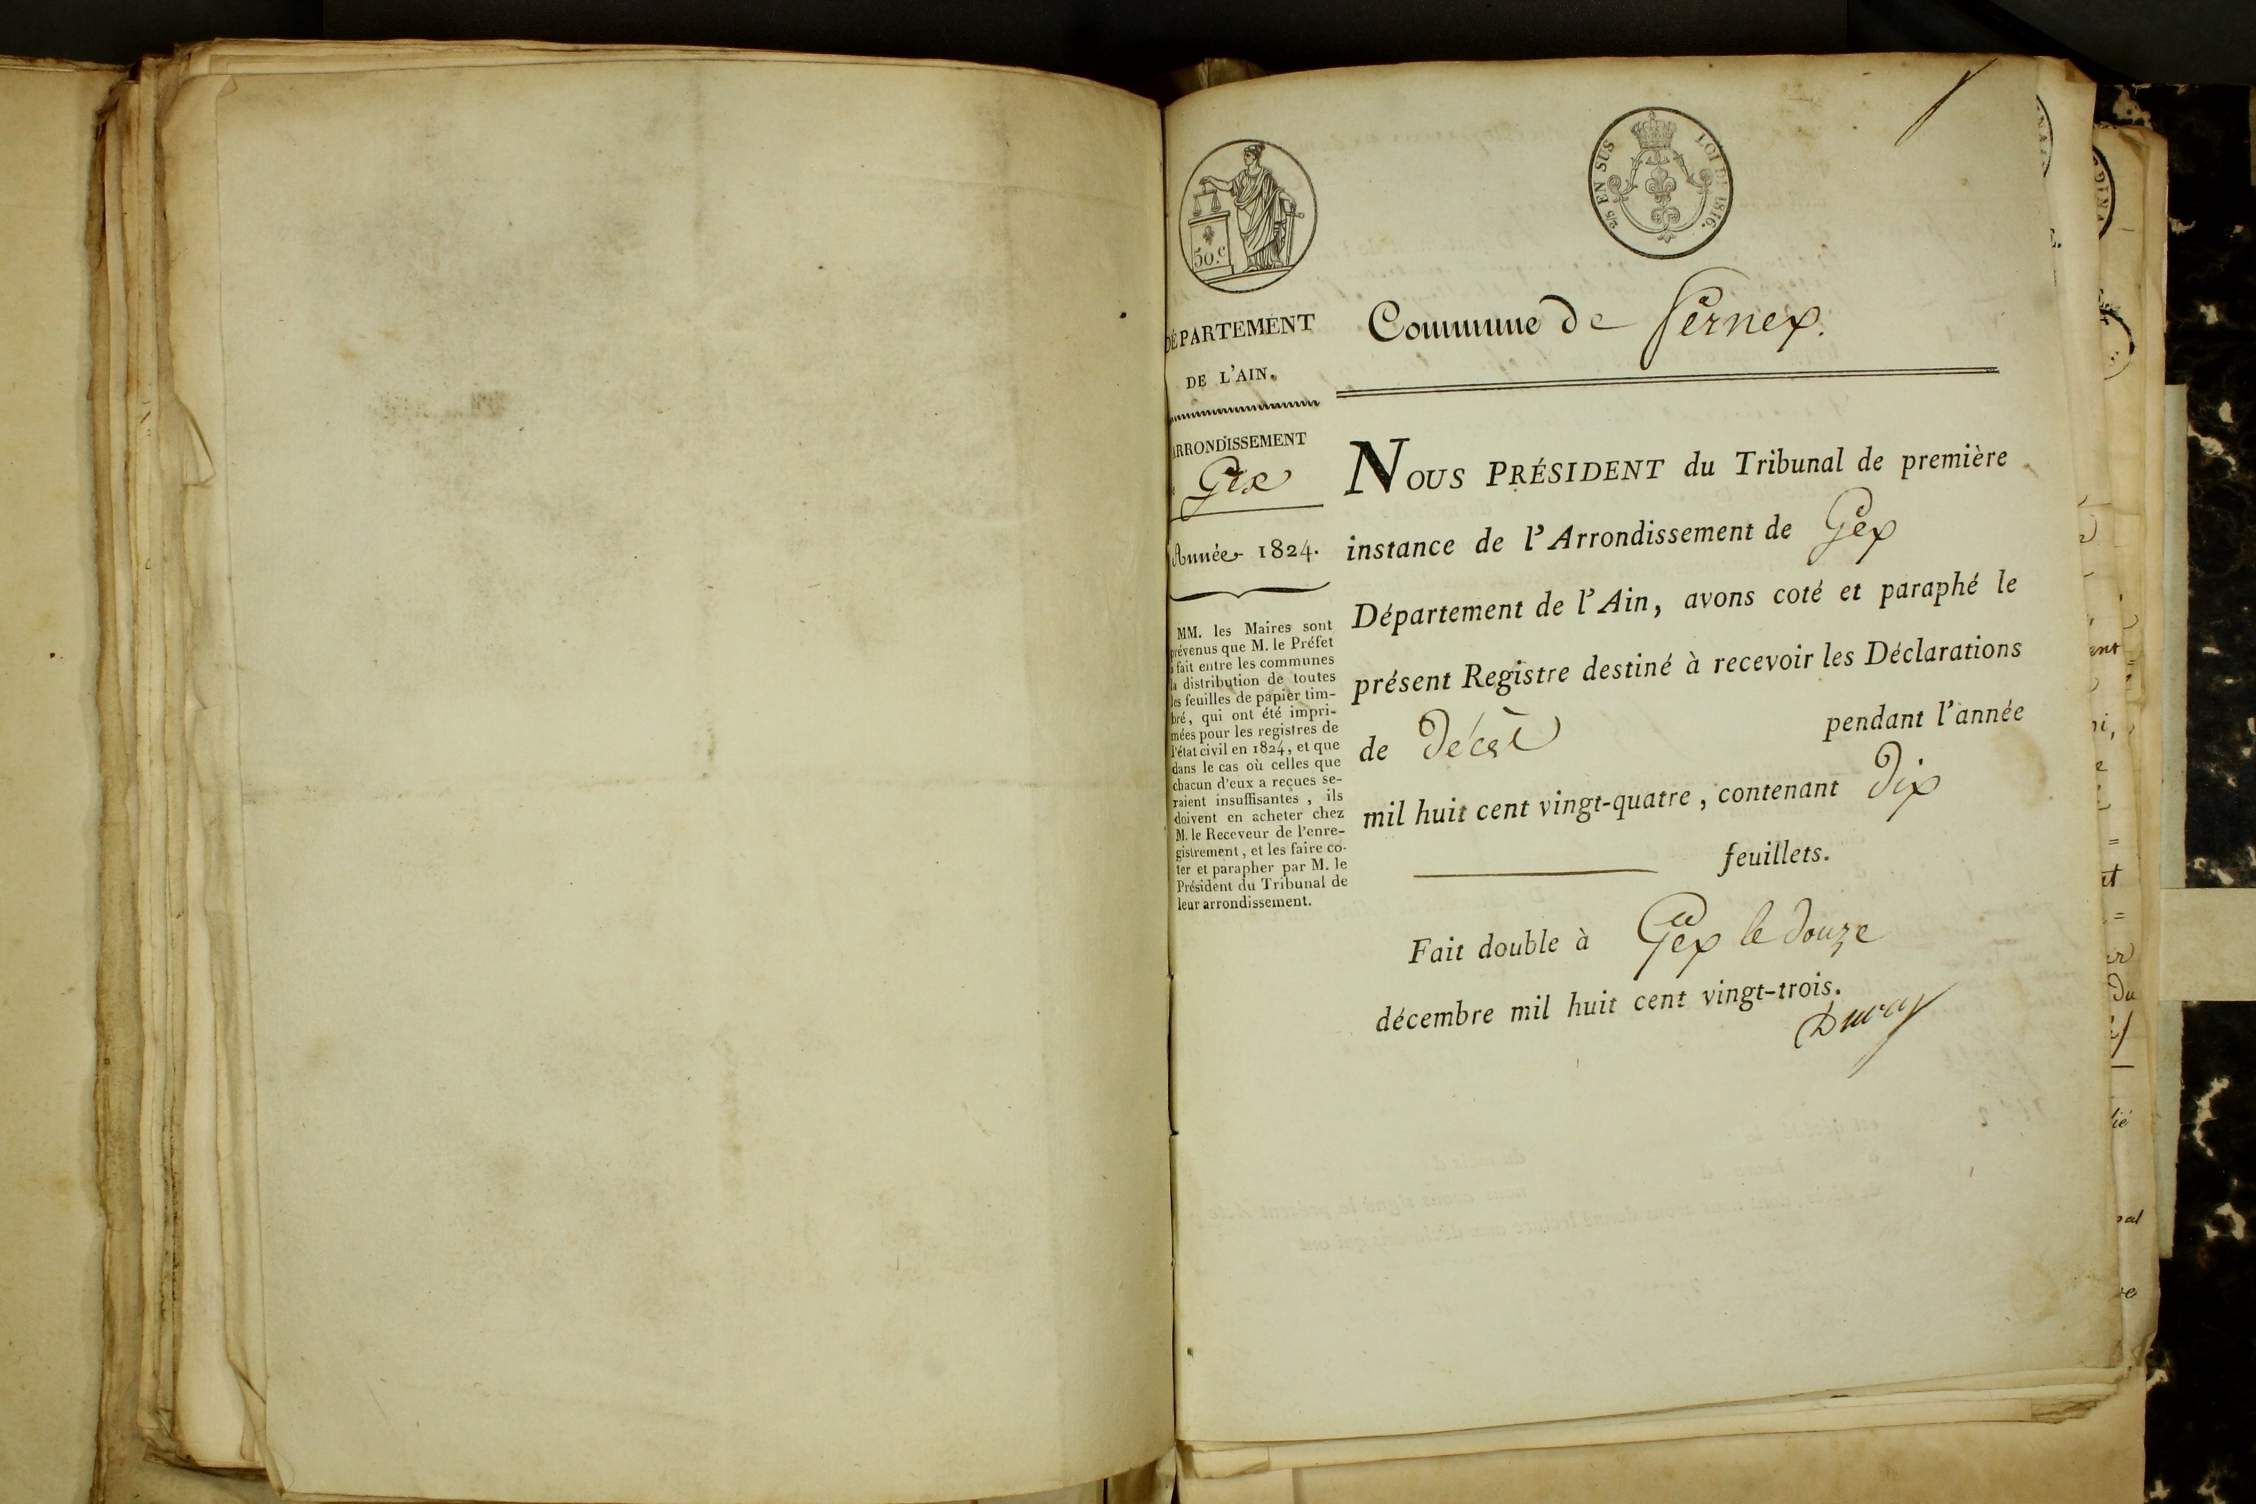 50.c
2/5 EN SUS LOI DE 1816.
DÉPARTEMENT
DE L'AIN.
ARRONDISSEMENT
Gex
Année 1824.
MM. les Maires sont
prévenus que M. le Préfet
a fait entre les communes
la distribution de toutes
les feuilles de papier tim-
bré, qui ont été impri-
mées pour les registres de
l'état civil en 1824, et que
dans le cas où celles que
chacun d'eux a reçues se-
raient insuffisantes, ils
doivent en acheter chez
M. le Receveur de l'enre-
gistrement, et les faire co-
ter et parapher par M. le
Président du Tribunal de
leur arrondissement.
Commune de Fernex.
NOUS PRÉSIDENT du Tribunal de première
instance de l'Arrondissement de Gex
Département de l'Ain, avons coté et paraphé le
présent Registre destiné à recevoir les Déclarations
de Décès pendant l'année
mil huit cent vingt-quatre, contenant dix
feuillets.
Fait double à Gex le douze
décembre mil huit cent vingt-trois.